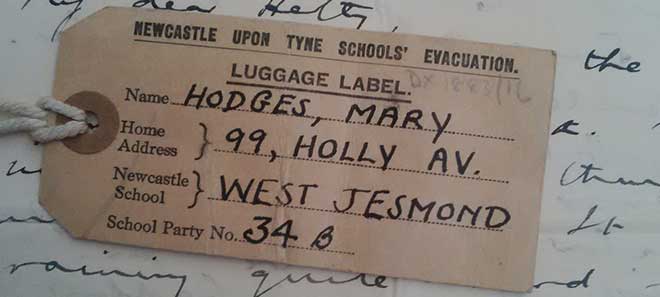 My dear Hetty,
the
NEWCASTLE UPON TYNE SCHOOLS' EVACUATION.
LUGGAGE LABEL.
Name HODGES, MARY
Home Address } 99, HOLLY AV.
Newcastle School } WEST JESMOND
School Party No. 34 B
raining quite